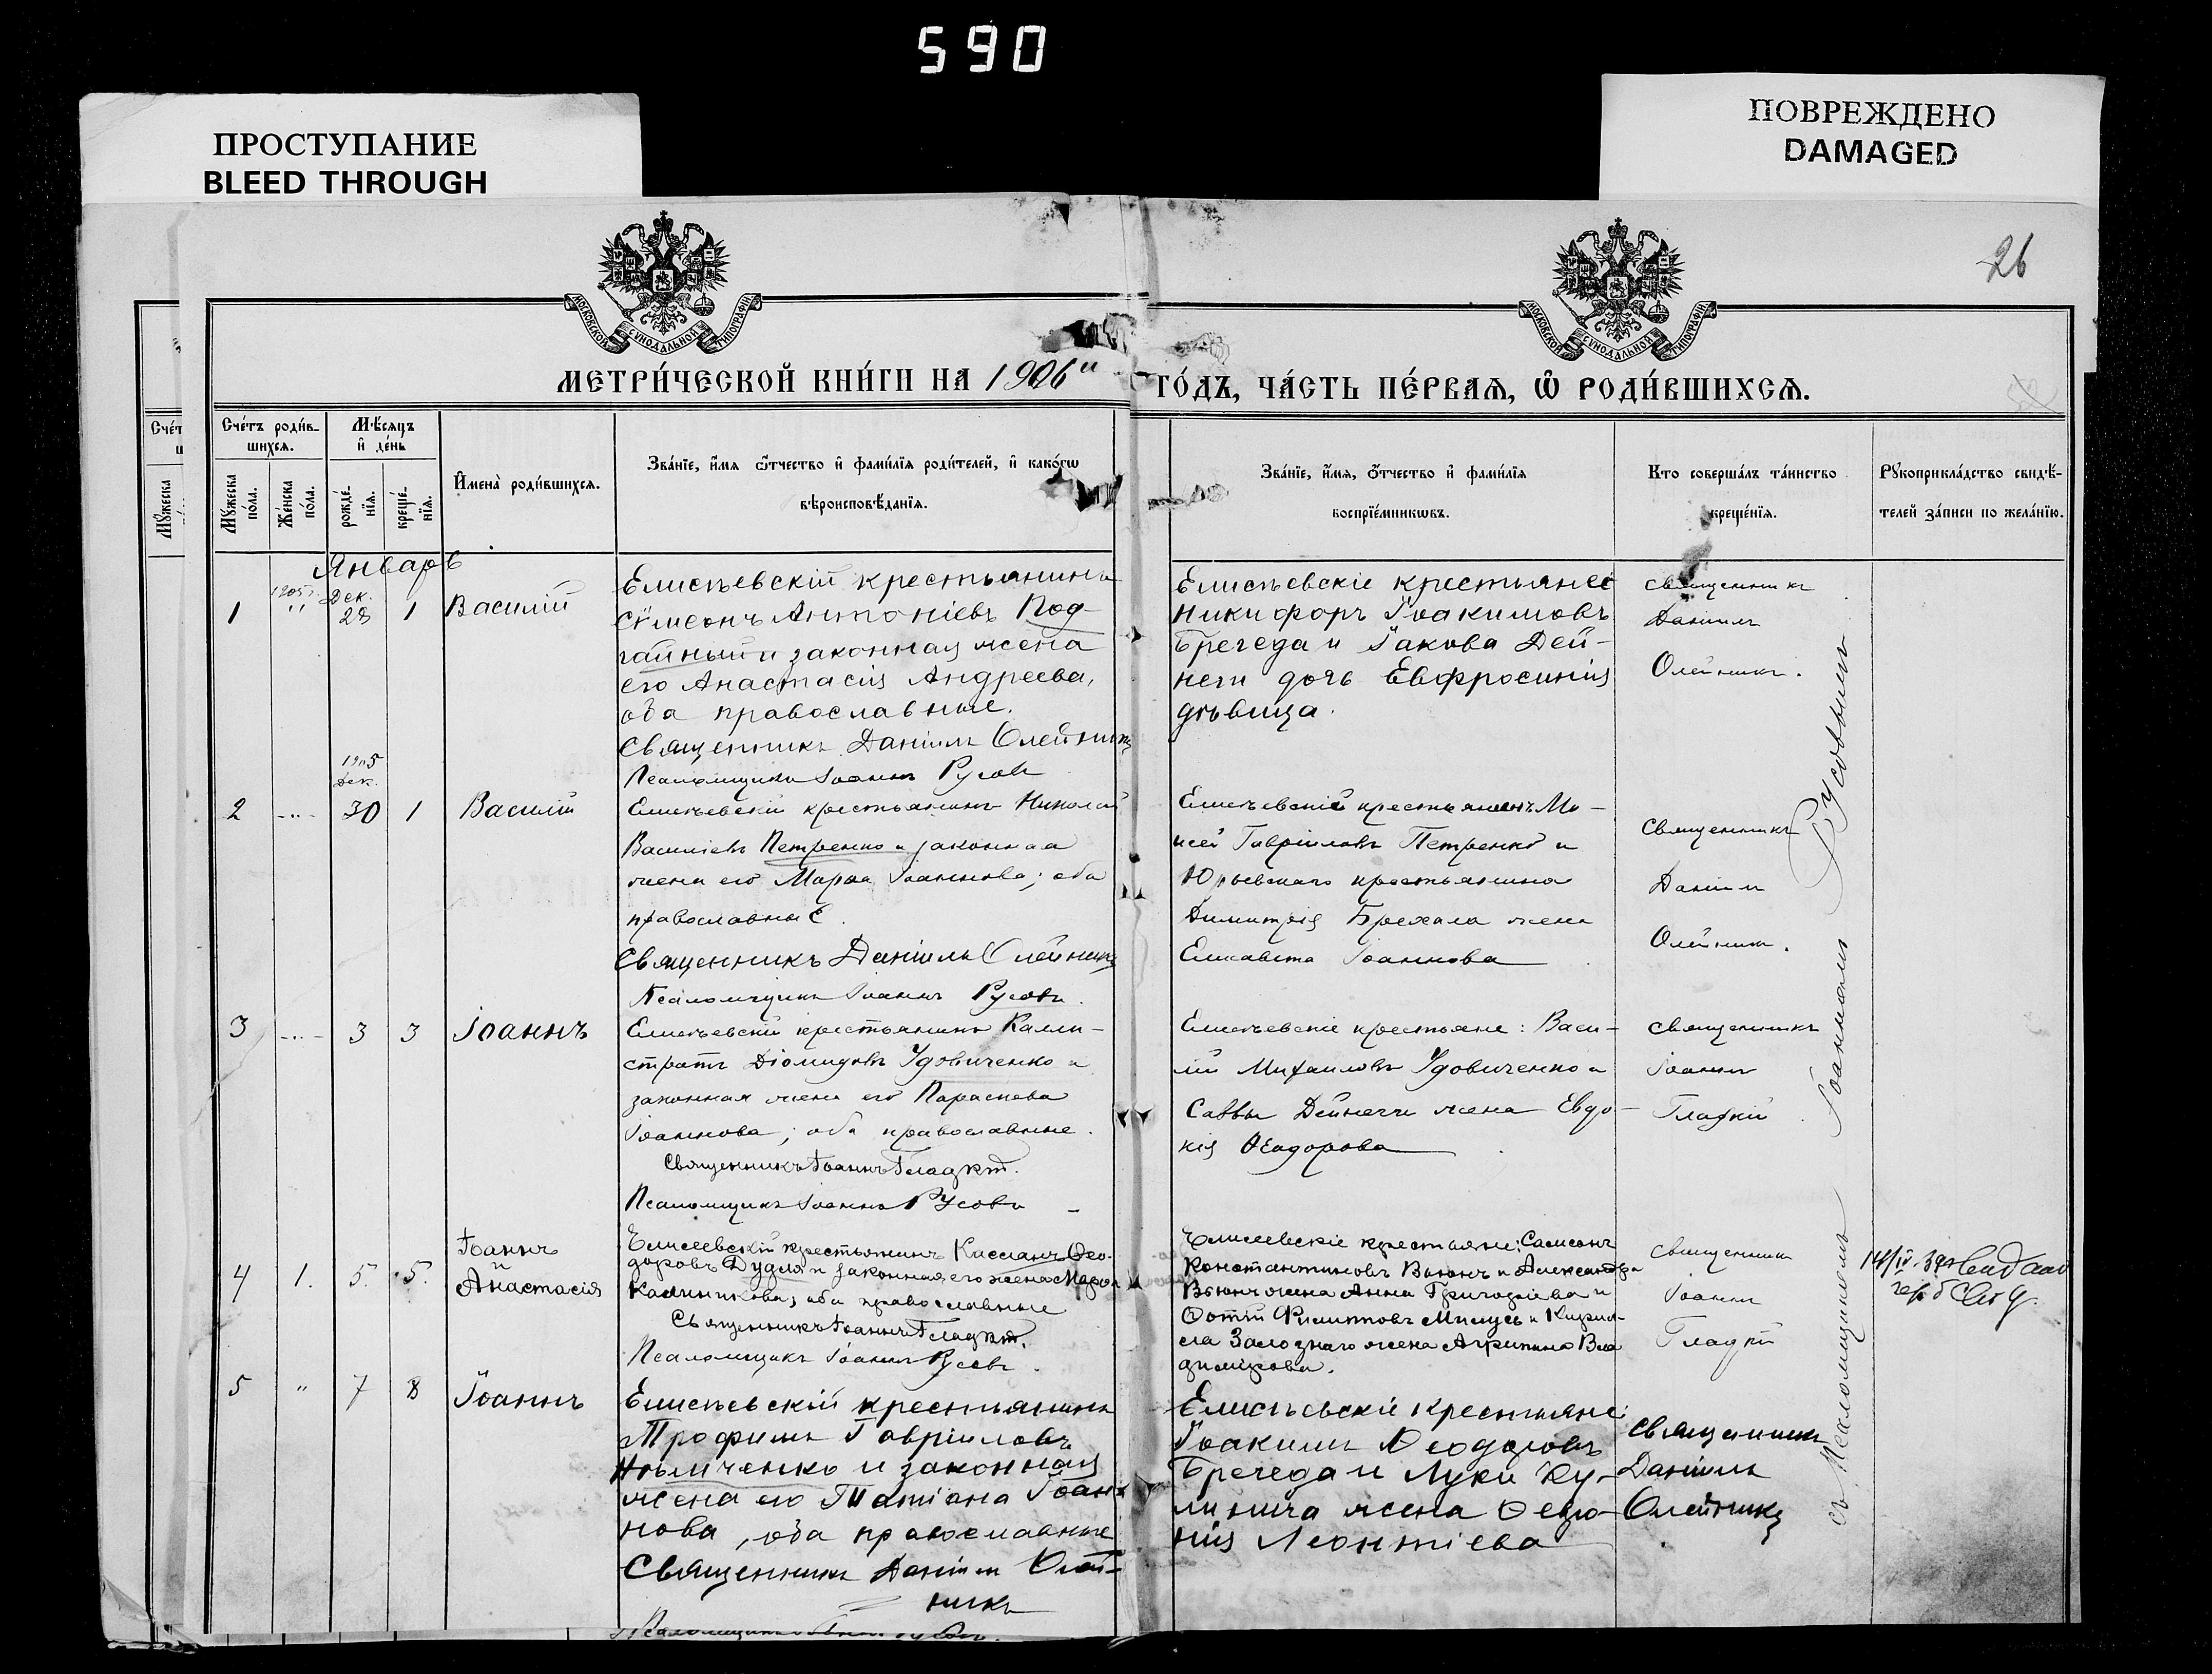 590
ПРОСТУПАНИЕ
BLEED THROUGH
ПОВРЕЖДЕНО
DAMAGED
26
МОСКОВСКОЙ СѴНОДАЛЬНОЙ ТИПОГРАФІИ
МОСКОВСКОЙ СѴНОДАЛЬНОЙ ТИПОГРАФІИ
МЕТРИ́ЧЕСКОЙ КНИ́ГИ НА 1906й ГО́ДЪ, ЧА́СТЬ ПЕ́РВАѦ, Ѡ҆ РОДИ́ВШИХСѦ.
Сче́тъ роди́в-
шихсѧ.
Мѣ́сѧцъ
и҆ де́нь
Мꙋ́жеска
по́ла.
Же́нска
по́ла.
рожде́-
нїѧ.
креще́-
нїѧ.
И҆мена̀ роди́вшихсѧ.
Зва́нїе, и҆́мѧ ѻ҆́тчество и҆ фамі́лїѧ роди́телей, и҆ како́гѡ
вѣроисповѣ́данїѧ.
Зва́нїе, и҆́мѧ, ѻ҆́тчество и҆ фамі́лїѧ
воспрїе́мникѡвъ.
Кто соверша́лъ та́инство
креще́нїѧ.
Рꙋкоприкла́дство свидѣ́-
телей за́писи по жела́нїю.
Январь
1 " 1905 г. Дек. 28 1 Василій
Елисѣевскій крестьянинъ
Сѵмеонъ Антоніевъ Под-
гайный и законная жена
его Анастасія Андреева,
оба православные.
Священникъ Даніилъ Олейникъ
Псаломщикъ Іоаннъ Русовъ
Елисѣевскіе крестьяне:
Никифоръ Іоакимовъ
Бречеда и Іакова Дей-
неги дочь Евфросинія
дѣвица.
Священникъ
Даніилъ
Олейникъ.
2 -"- 1905 Дек. 30 1 Василій
Елисѣевскій крестьянинъ Николай
Василіевъ Петренко и законная
жена его Марѳа Іоаннова; оба
православные.
Священникъ Даніилъ Олейникъ
Псаломщикъ Іоаннъ Русовъ.
Елисѣевскій крестьянинъ Мо-
исей Гавріиловъ Петренко и
Юрьевскаго крестьянина
Димитрія Брехала жена
Елисавета Іоаннова
Священникъ
Даніилъ
Олейникъ.
3 -"- 3 3 Іоаннъ
Елисѣевскій крестьянинъ Калли-
стратъ Діомидовъ Удовиченко и
законная жена его Параскева
Іоаннова; оба православные.
Священникъ Іоаннъ Гладкій.
Псаломщикъ Іоаннъ Русовъ
Елисѣевскіе крестьяне: Васи-
лій Михаиловъ Удовиченко и
Саввы Дейнеги жена Евдо-
кія Ѳеодорова
Священникъ
Іоаннъ
Гладкій
4 1. 5. 5. Іоаннъ
и
Анастасія
Елисеевскій крестьянинъ Кассіанъ Ѳео-
доровъ Дудля и законная его жена Марѳа
Калиникова, оба православные
Священникъ Іоаннъ Гладкій.
Псаломщикъ Іоаннъ Русовъ.
Елисеевскіе крестьяне: Самсонъ
Константиновъ Вьюнъ и Александра
Вьюнъ жена Анна Григоріева и
Фотій Филиповъ Милусь и Кирил-
ла Залознаго жена Агрипина Вла-
димірова.
Священникъ
Іоаннъ
Гладкій
5 " 7 8 Іоаннъ
Елисѣевскій крестьянинъ
Трофимъ Гавріиловъ
Нѣмченко и законная
жена его Татіана Іоан-
нова, оба православные
Священникъ Даніилъ Олей-
никъ
Елисѣевскіе крестьяне:
Іоакимъ Ѳеодоровъ
Бречеда и Луки Ку-
линича жена Ѳевро-
нія Леонтіева
Священникъ
Даніилъ
Олейникъ
съ Псаломщикомъ Іоанномъ Русовымъ